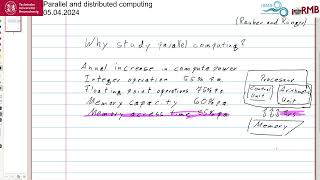 Parallel and distributed computing
05.04.2024
RMB
(Rauber and Rünger)
Why study parallel computing?
Annual increase in compute power
Integer operation 55% p.a.
Floating point operations 75% p.a.
Memory capacity 60% p.a.
Memory access time 25% p.a.
Processor
Control Unit
Arithmetic Unit
Memory